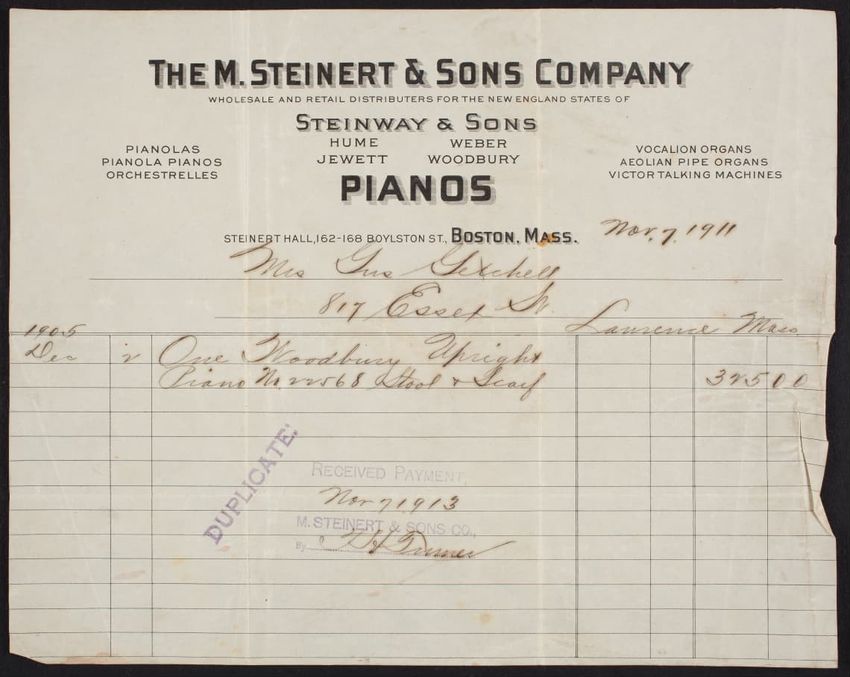 THE M. STEINERT & SONS COMPANY
WHOLESALE AND RETAIL DISTRIBUTERS FOR THE NEW ENGLAND STATES OF
STEINWAY & SONS
HUME WEBER
JEWETT WOODBURY
PIANOS
PIANOLAS
PIANOLA PIANOS
ORCHESTRELLES
VOCALION ORGANS
AEOLIAN PIPE ORGANS
VICTOR TALKING MACHINES
STEINERT HALL, 162-168 BOYLSTON ST., BOSTON, MASS. Nov. 7, 1911
Mrs Gus Getchell
817 Essex St.
Lawrence Mass
1905
Dec 2 One Woodbury Upright
Piano No 22568 Stool & Scarf 325 00
DUPLICATE.
RECEIVED PAYMENT,
Nov 7 1913
M. STEINERT & SONS CO.,
By